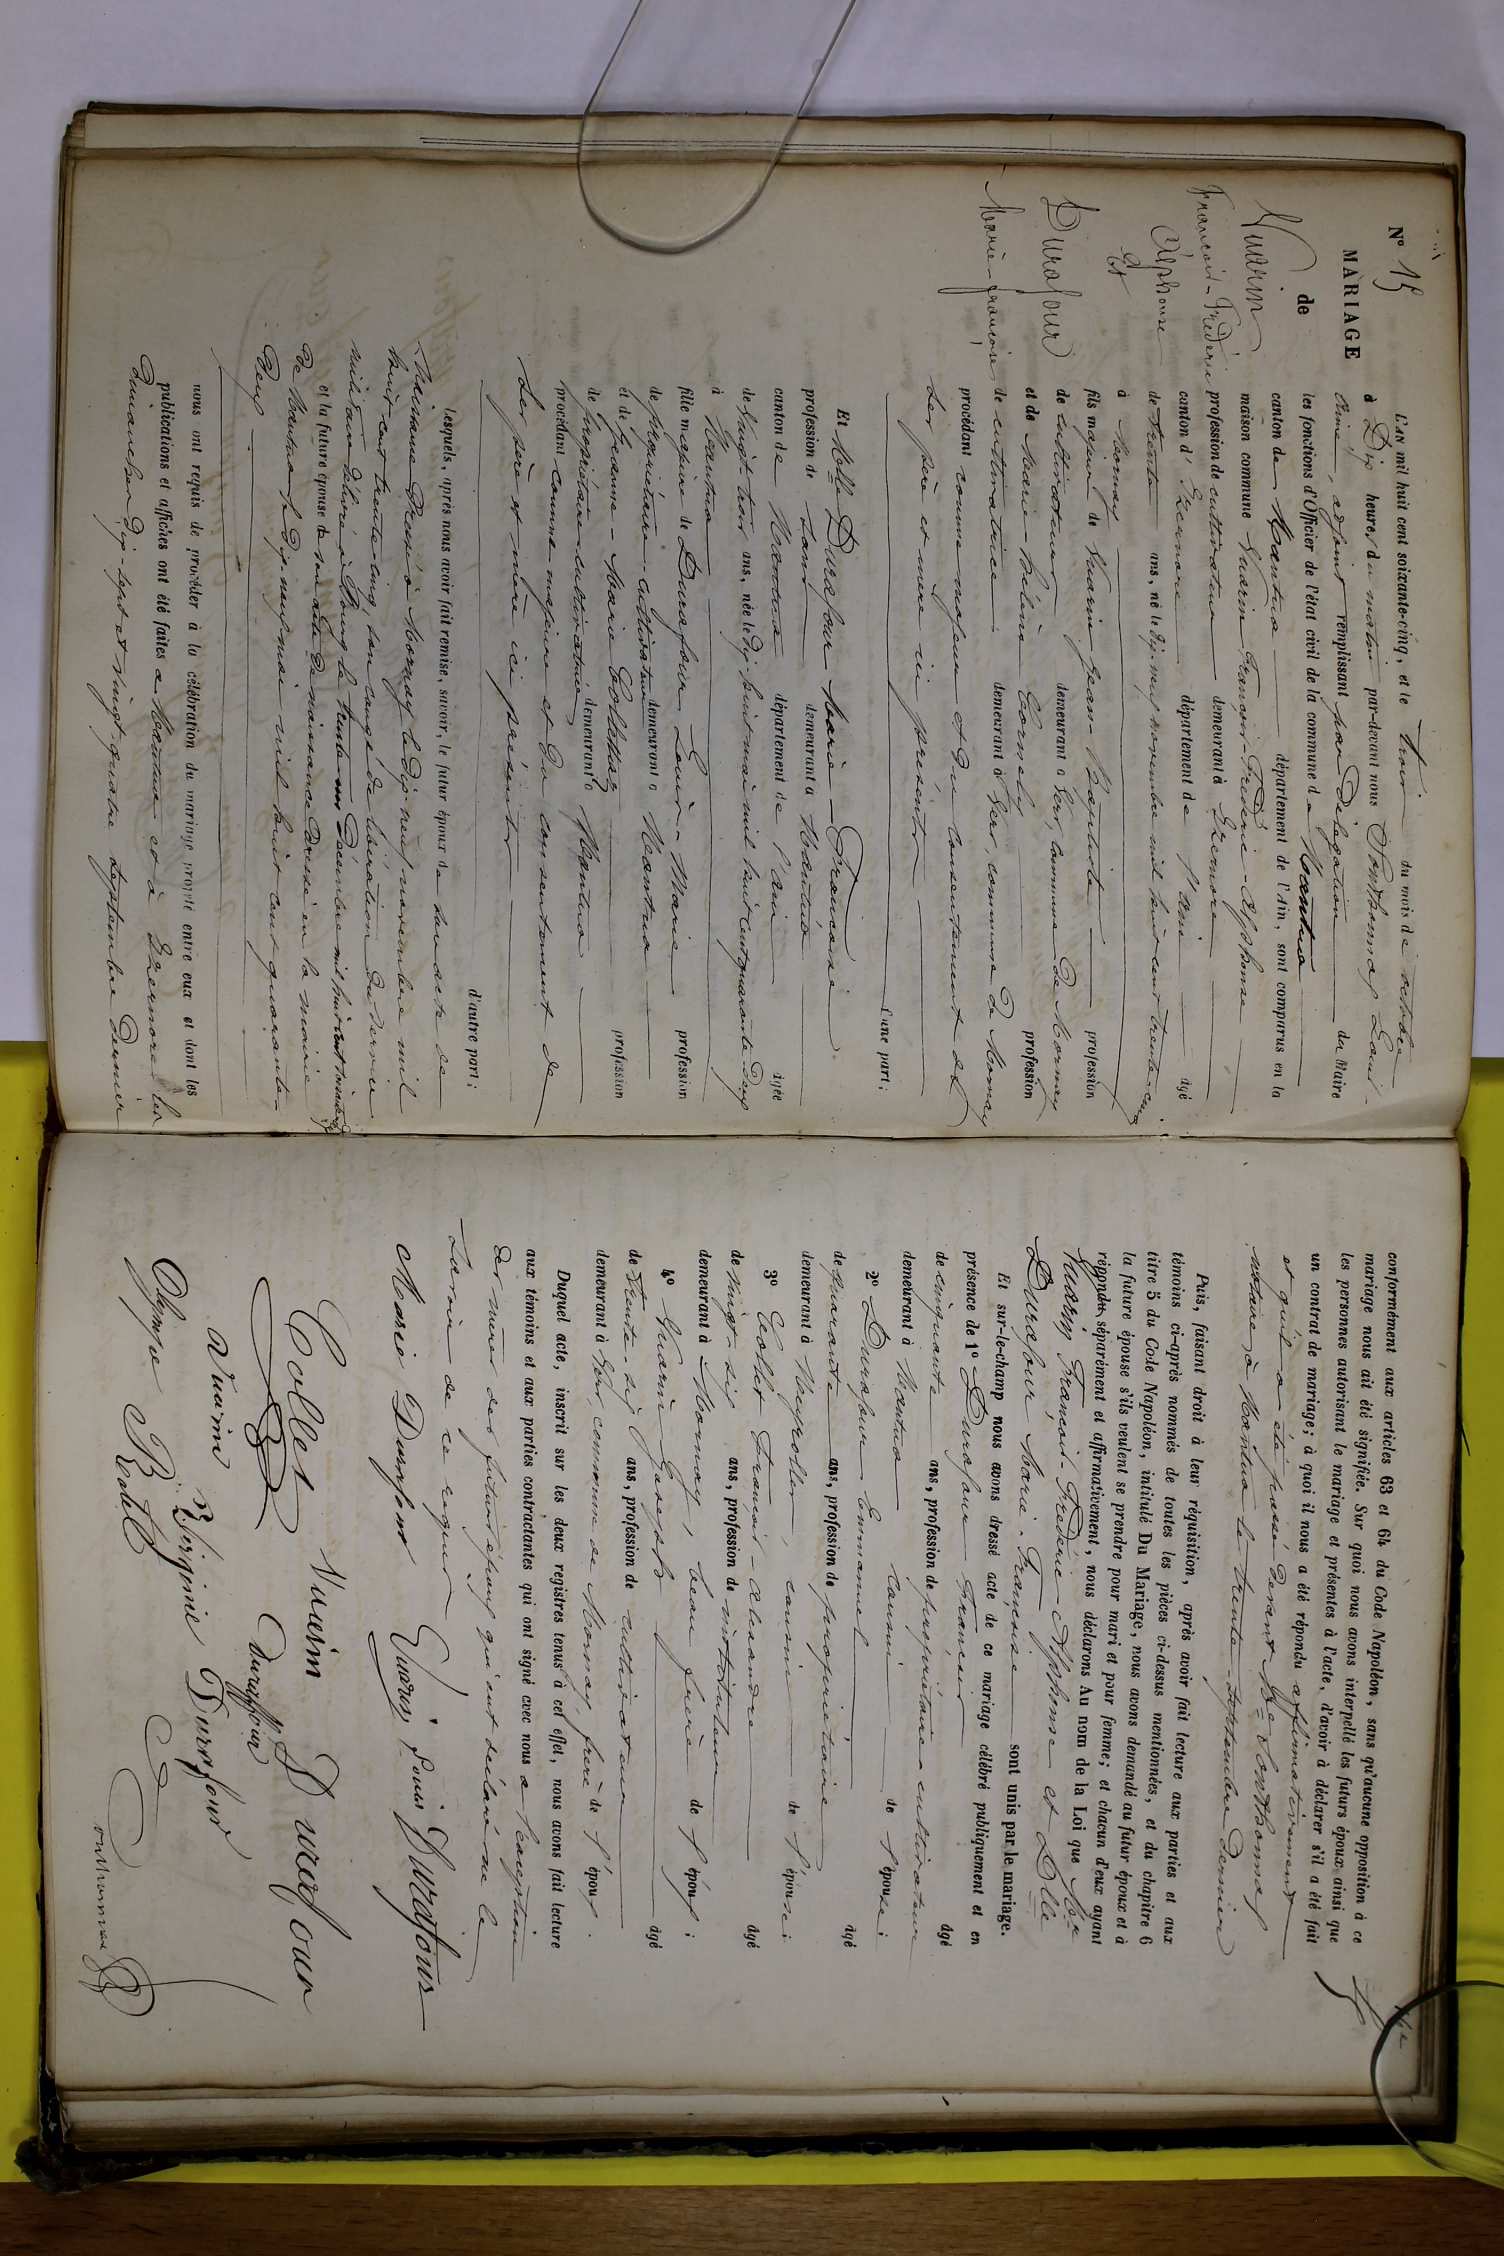 N° 15
MARIAGE
de
Vuarin
François-Frédéric
Alphonse
Et
Durafour
Marie-françoise
L'AN mil huit cent soixante-cinq, et le Trois du mois de octobre
à Dix heures du matin par-devant nous Louis-
adjoint remplissant par Délégation du Maire
les fonctions d'Officier de l'état civil de la commune de Nantua
canton de Nantua département de l'Ain, sont comparus en la
maison commune Vuarin François-Frédéric-Alphonse
profession de cultivateur demeurant à Izernore
canton d'Izernore département de l'ain âgé
de trente ans, né le dix neuf novembre mil huit cent trente-cinq
à Mornay
fils majeur de Vuarin Jean-Baptiste profession
de cultivateur demeurant à Ger, commune de Mornay
et de Marie-hélène profession
de cultivatrice demeurant à Ger, commune de Mornay
procédant comme majeur et du Consentement de
ses père et mère ici présents
d'une part;
Et Melle Durafour Marie-Françoise
profession de sans demeurant à Nantua
canton de Nantua département de l'ain âgée
de vingt trois ans, née le dix huit mai mil huit cent quarante deux
à Nantua
fille majeure de Durafour Louis-Marie profession
de propriétaire-cultivateur demeurant à Nantua
et de Jeanne-Marie profession
de propriétaire-cultivatrice demeurant à Nantua
procédant comme majeure et du consentement de
ses père et mère ici présents
d'autre part;
Lesquels, après nous avoir fait remise, savoir, le futur époux de son acte de
Naissance Dressé à Mornay le dix neuf novembre mil
huit cent trente cinq son congé de libération du service
militaire délivré à Bourg le trente un Décembre mil huit cent
et la future épouse de son acte de naissance Dressé en la mairie
de Nantua le dix neuf mai mil huit cent quarante-
deux
nous ont requis de procéder à la célébration du mariage projeté entre eux et dont les
publications et affiches ont été faites à Nantua et à Izernore les
dimanches dix-sept et vingt-quatre septembre dernier
conformément aux articles 63 et 64 du Code Napoléon, sans qu'aucune opposition à ce
mariage nous ait été signifiée. Sur quoi nous avons interpellé les futurs époux ainsi que
les personnes autorisant le mariage et présentes à l'acte, d'avoir à déclarer s'il a été fait
un contrat de mariage; à quoi il nous a été répondu affirmativement
et qu'il a été passé devant Me
notaire à Nantua le trente septembre dernier
Puis, faisant droit à leur réquisition, après avoir fait lecture aux parties et aux
témoins ci-après nommés de toutes les pièces ci-dessus mentionnées, et du chapitre 6
titre 5 du Code Napoléon, intitulé Du Mariage, nous avons demandé au futur époux et à
la future épouse s'ils veulent se prendre pour mari et pour femme; et chacun d'eux ayant
répondu séparément et affirmativement, nous déclarons Au nom de la Loi que Mr
Vuarin François-Frédéric-Alphonse et Delle
Durafour Marie-Françoise sont unis par le mariage.
Et sur-le-champ nous avons dressé acte de ce mariage célébré publiquement et en
présence de 1° Durafour Francois âgé
de cinquante ans, profession de propriétaire-cultivateur
demeurant à Nantua cousin de l'épouse;
2° Durafour Emmanuel âgé
de quarante ans, profession de propriétaire
demeurant à cousin de l'épouse;
3° Collet François-Alexandre âgé
de vingt-six ans, profession de instituteur
demeurant à Mornay, beau frère de l'époux;
4° Vuarin Joseph âgé
de trente-six ans, profession de cultivateur
demeurant à Ger, commune de Mornay, frère de l'époux.
Duquel acte, inscrit sur les deux registres tenus à cet effet, nous avons fait lecture
aux témoins et aux parties contractantes qui ont signé avec nous à l'exception
des mères des futurs époux qui ont déclaré ne le
savoir de ce requis
Marie Durafour Vuarin Louis Durafour
Collet Vuarin Durafour
Duraffour
Vuarin Virginie Durafour
Olympe